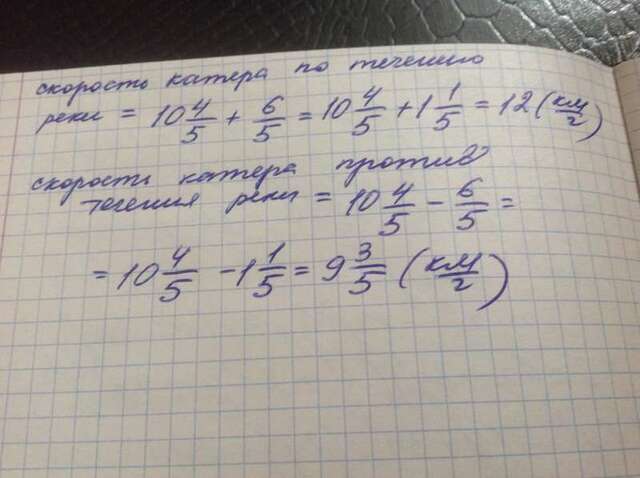 скорость катера по течению
реки = 10 4/5 + 6/5 = 10 4/5 + 1 1/5 = 12 (км/ч)
скорость катера против
течения реки = 10 4/5 - 6/5 =
= 10 4/5 - 1 1/5 = 9 3/5 (км/ч)